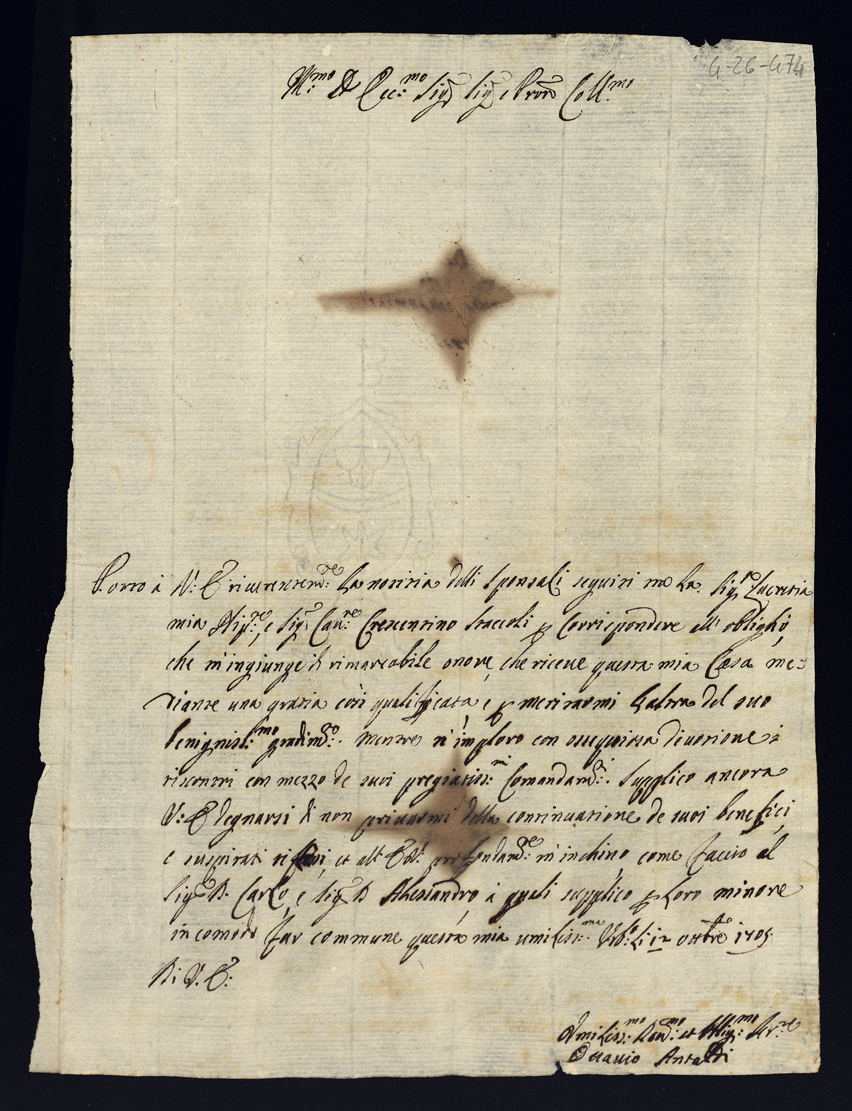 G-26-474
Ill.mo Et Ecc:mo Sig.r Sig.r e Pron Coll.mo
Porto à V: E riverentem.te la notizia delli sponsali seguiti trà la Sig.ra Lucrezia
mia Nip.te, e Sig.r Cav.re Crescentino Staccoli p corrispondere all' obligho,
che m'ingiunge il rimarcabile onore, che riceve questa mia Casa me-
diante una grazia così qualificata, e p meritarmi l'altra del suo
benigniss:mo gradim.to: mentre n'imploro con ossequiosa divozione i
riscontri con mezzo de suoi pregiatiss:mi Comandam.ti. Supplico ancora
V: E degnarsi di non privarmi della continuazione de suoi benefici,
e suspirati et all' E.V. profondam.te m'inchino come faccio al
Sig.r D. Carlo, e Sig.r D Alessandro, à quali supplico p loro minore
incomodo far commune questa mia umiliss:ma. Urb.o li 12 ottbre 1705
Di V. E:
Umiliss:mo Dev.mo et Oblig:mo Ser.re
Ottavio Antaldi